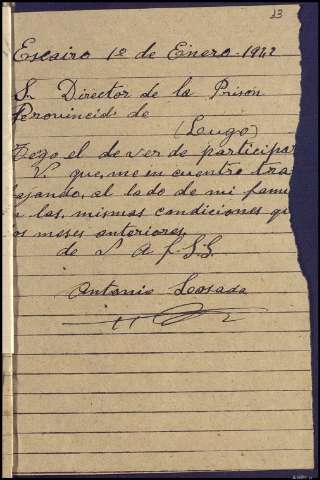 23
Escairo 1º de Einero-1942
S. Director de la Prison
Provincial de
(Lugo)
Tego el dever de participar
V. que, me en cuentro tra
bajando, el lado de mi fami
a las, mismas condiciones qu
os meses anteriores,
de V A f. S.S.
Antonio Losada